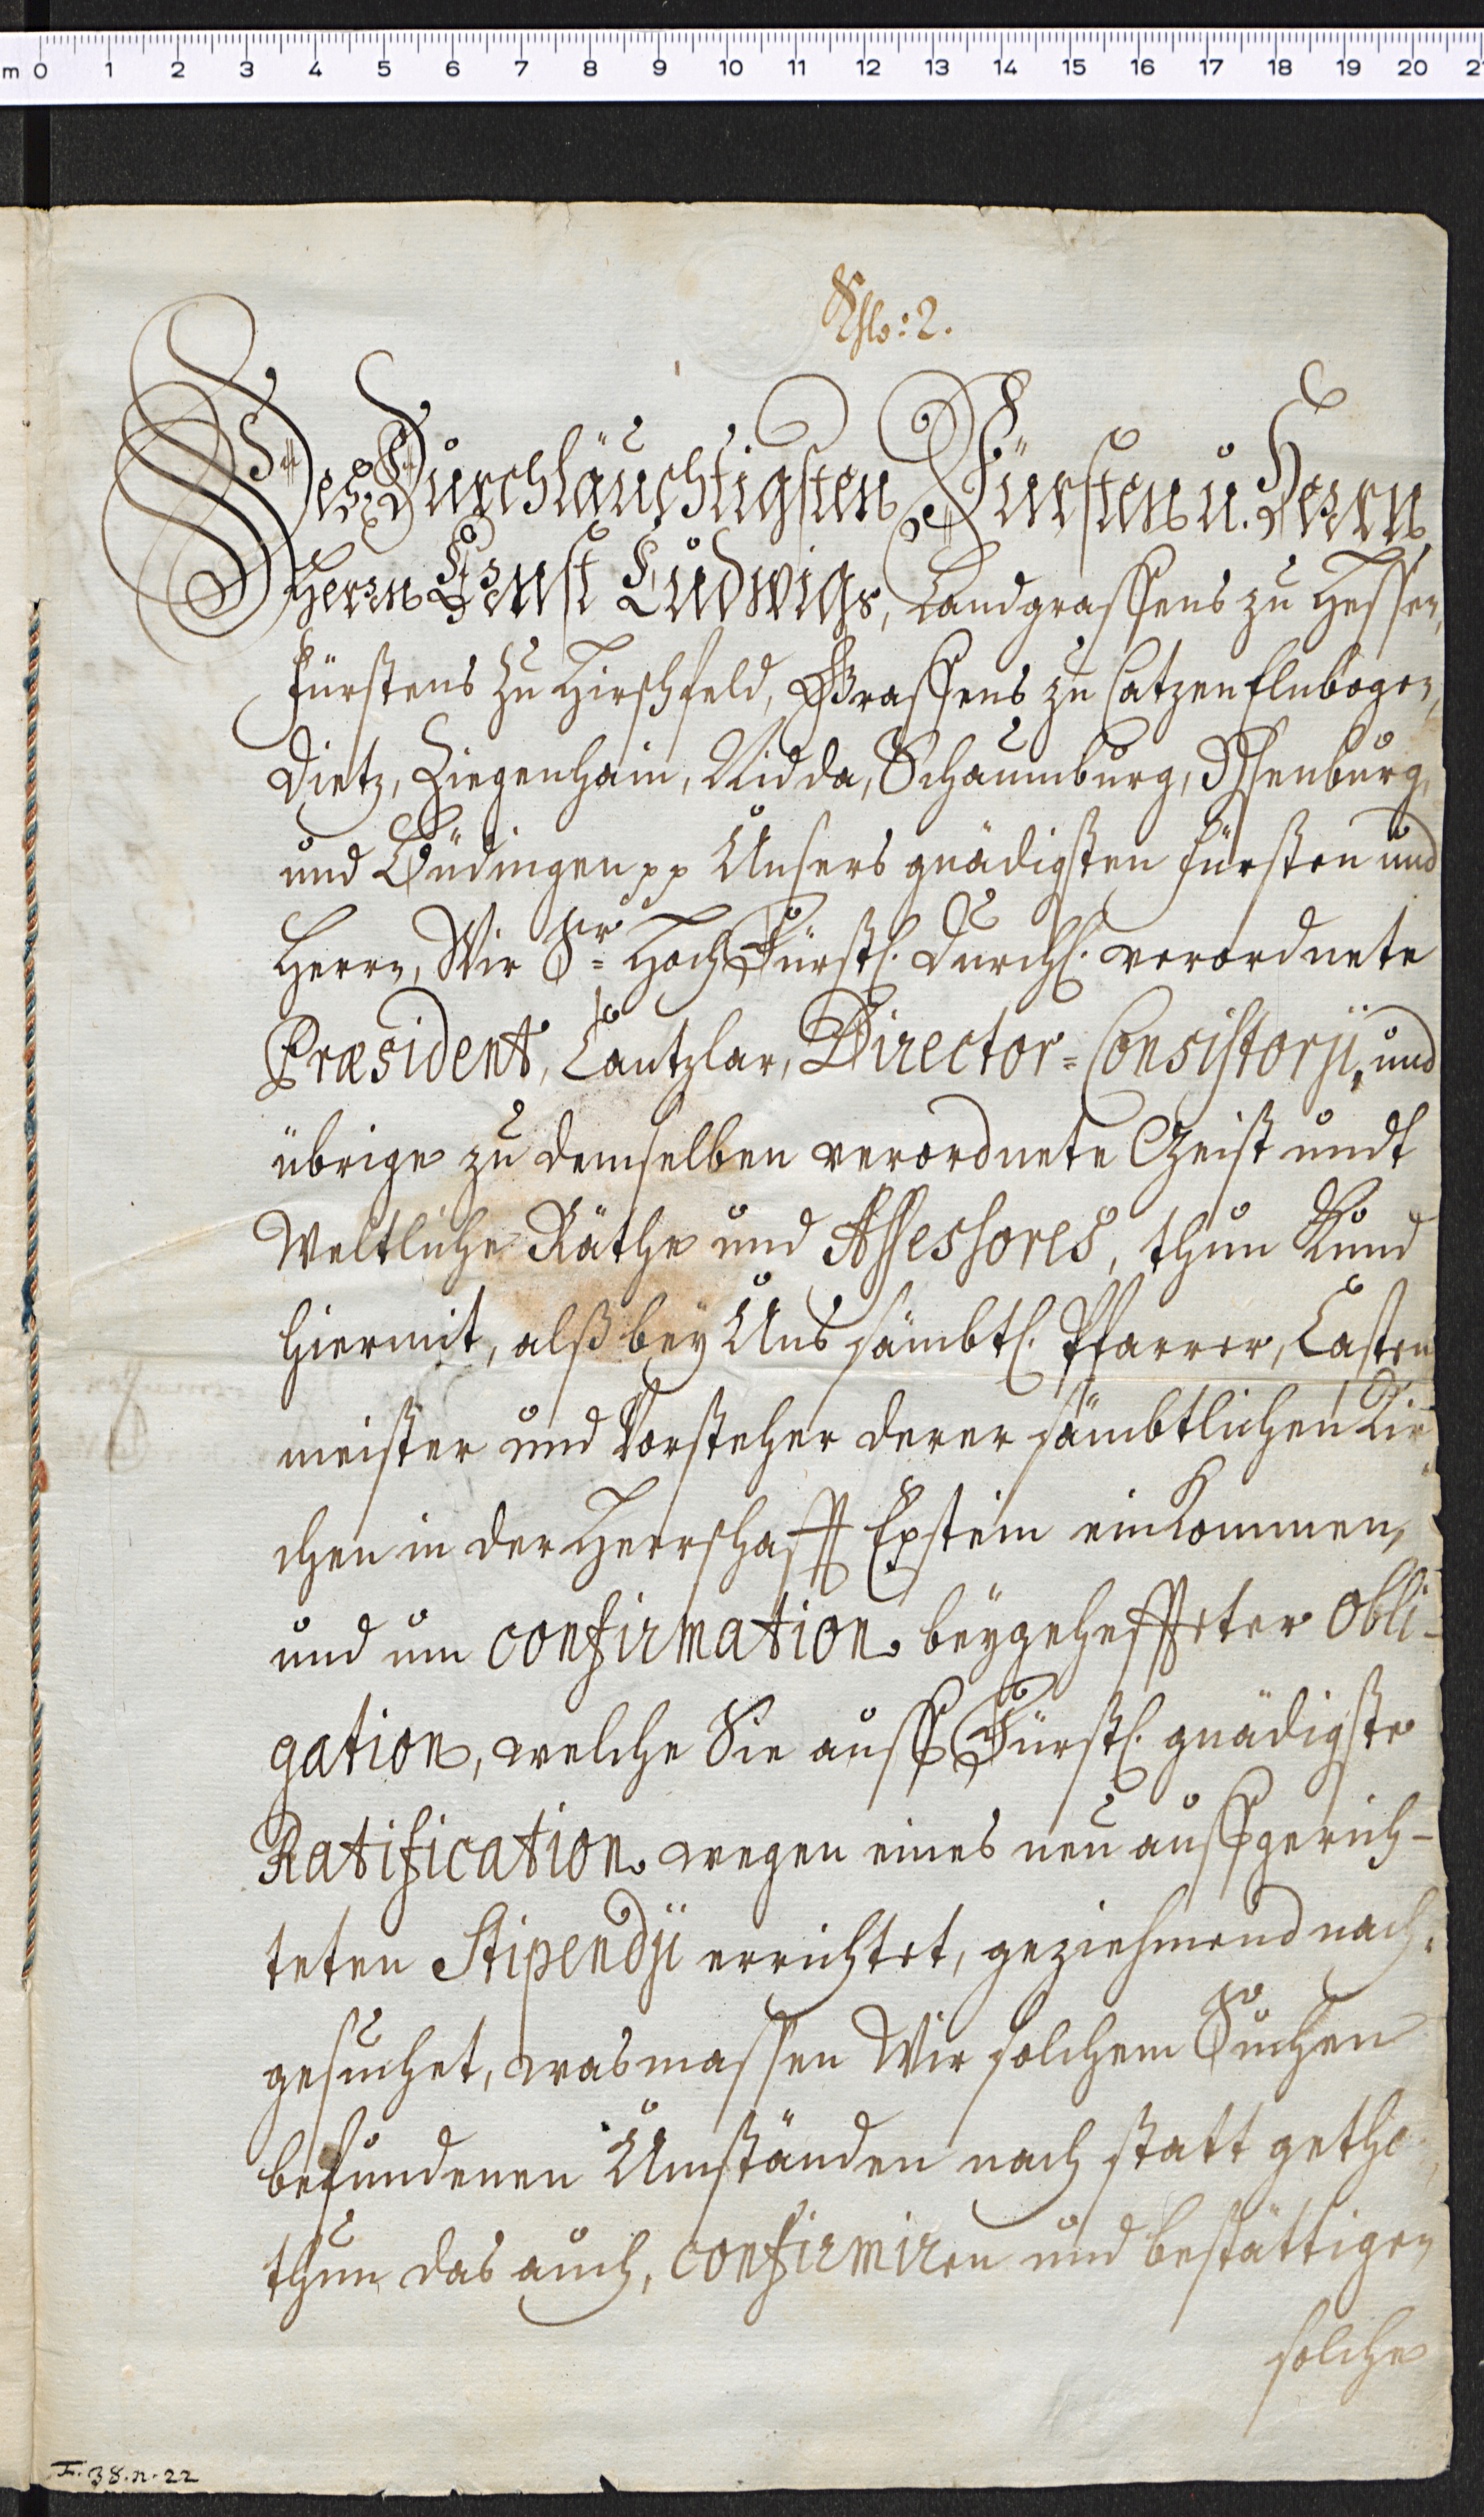 m 0 1 2 3 4 5 6 7 8 9 10 11 12 13 14 15 16 17 18 19 20
2.
Des Durchläuchtigsten Fürsten u. Herrn
Herrn Ernst Ludwigs, Landgraffens zu Hessen,
Fürstens zu Hirschfeld, Graffens zu Catzenelnbogen,
Dietz, Ziegenhain, Nidda, Schaumburg, Ysenburg,
und Büdingen pp Unsers gnädigsten Fürsten und
Herrn, Wir Sr. Hoch Fürstl. Durchl. verordnete
Præsident, Cantzlar, Director-Consistorÿ, und
übrige zu demselben verordnete Geist undt
Weltliche Räthe und Assessores, thun Kund
hiermit, alß bey Uns sämbtl. Pfarrer, Casten
meister und Vorsteher derer sämbtlichen Kir
chen in der Herrschafft Epstein einkommen,
und um confirmation beygeheffteter obli-
gation, welche Sie auff Fürstl. gnädigste
Ratification wegen eines neu auffgerich-
teten Stipendÿ errichtet, geziehmend nach-
gesuchet, wasmassen Wir solchem Suchen
befundenen Umständen nach statt getha
thun das auch, confirmiren und bestättigen
solche
F. 38. n. 22